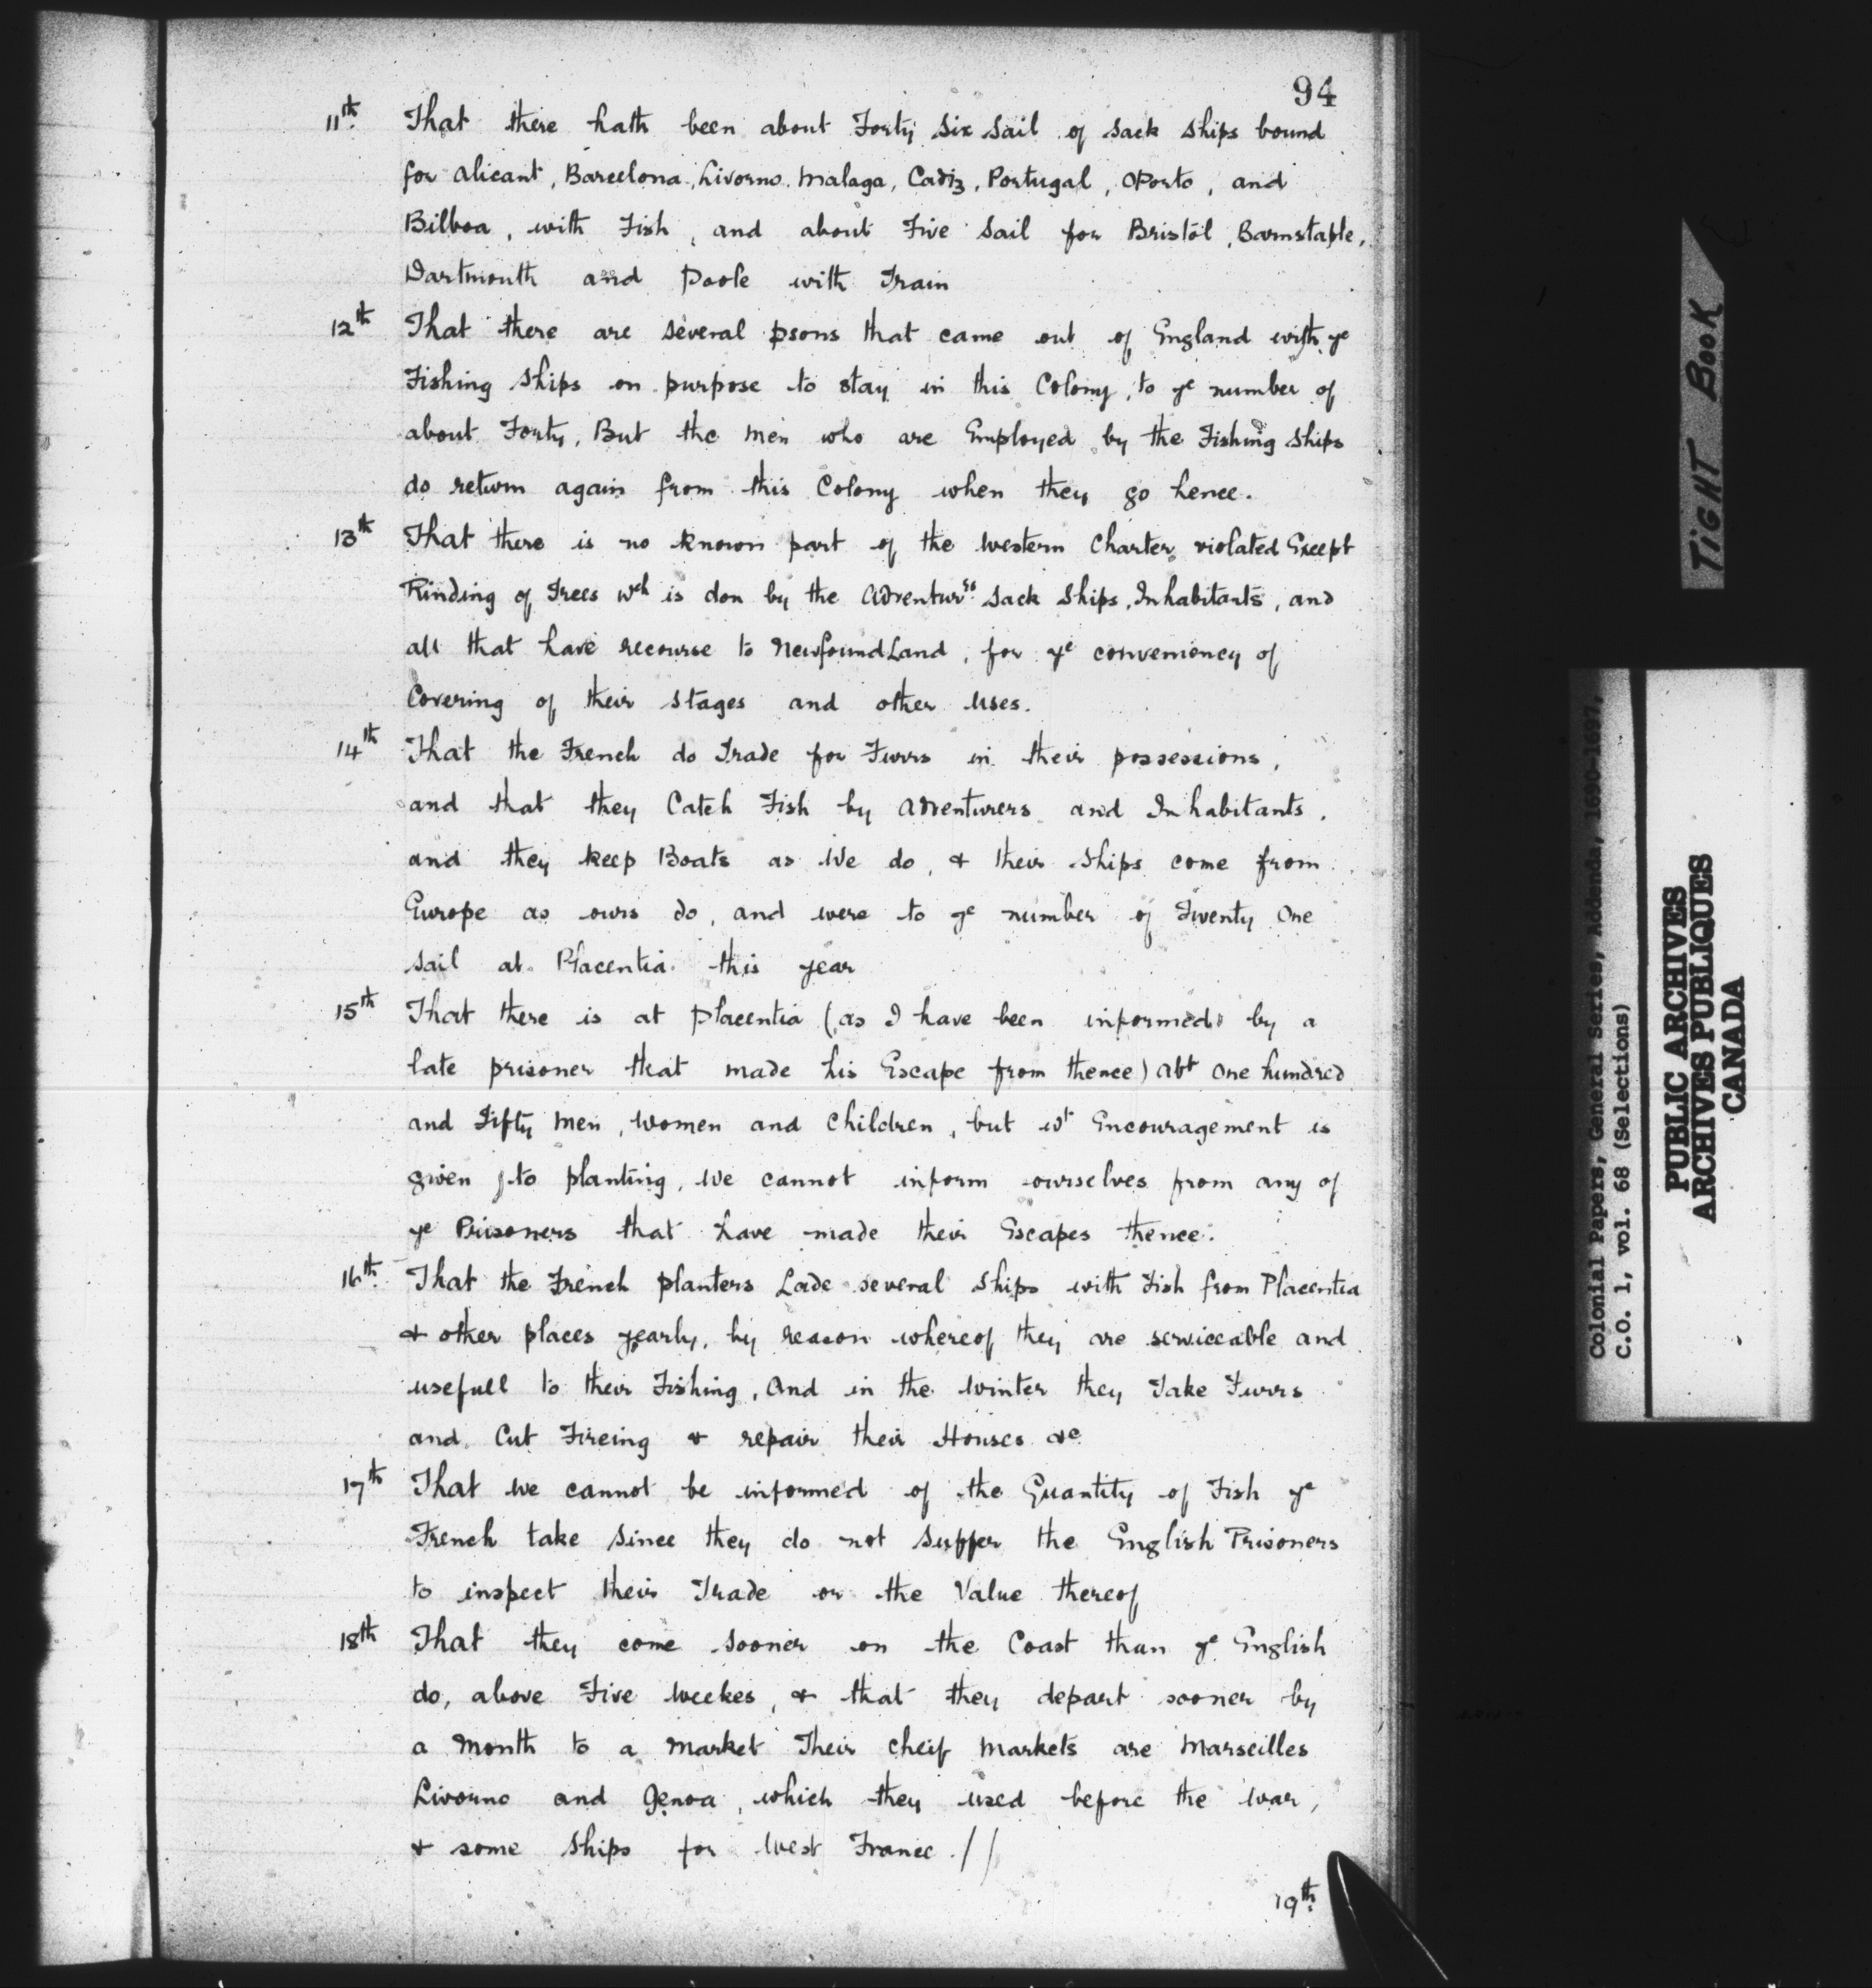 94
11th. That there hath been about Forty Six Sail of Sack Ships bound
for Alicant, Barcelona, Livorno, Malaga, Cadiz, Portugal, OPorto, and
Bilboa, with Fish, and about Five Sail for Bristol, Barnstaple,
Dartmouth and Poole with Train
12th That there are several psons that came out of England with ye
Fishing Ships on purpose to stay in this Colony, to ye number of
about Forty, But the Men who are Employed by the Fishing Ships
do return again from this Colony when they go hence.
13th That there is no known part of the Western Charter violated Except
Rinding of Trees wch is don by the Adventurrs Sack Ships, Inhabitants, and
all that have recourse to NewfoundLand, for ye conveniency of
Covering of their Stages and other Uses.
14th That the French do Trade for Furrs in their possessions,
and that they Catch Fish by Adventurers and Inhabitants,
and they keep Boats as We do, & their Ships come from
Europe as ours do, and were to ye number of Twenty One
Sail at Placentia this year
15th That there is at Placentia (as I have been informed by a
late prisoner that made his Escape from thence) abt One hundred
and Fifty Men, Women and Children, but wt Encouragement is
given to planting, We cannot inform ourselves from any of
ye Prisoners that have made their Escapes thence.
16th. That the French planters Lade several Ships with Fish from Placentia
& other places yearly, by reason whereof they are serviceable and
usefull to their Fishing, And in the Winter they Take Furrs
and Cut Fireing & repair their Houses &c
17th That We cannot be informed of the Quantity of Fish ye
French take Since they do not Suffer the English Prisoners
to inspect their Trade or the Value thereof
18th That they come Sooner on the Coast than ye English
do, above Five Weekes, & that they depart sooner by
a Month to a Market Their cheif Markets are Marseilles
Livorno and Genoa, which they used before the War,
& some Ships for West France.//
19th.
TIGHT BOOK
Colonial Papers, General Series, Addenda, 1690-1697,
C.O. 1, vol. 68 (Selections)
PUBLIC ARCHIVES
ARCHIVES PUBLIQUES
CANADA